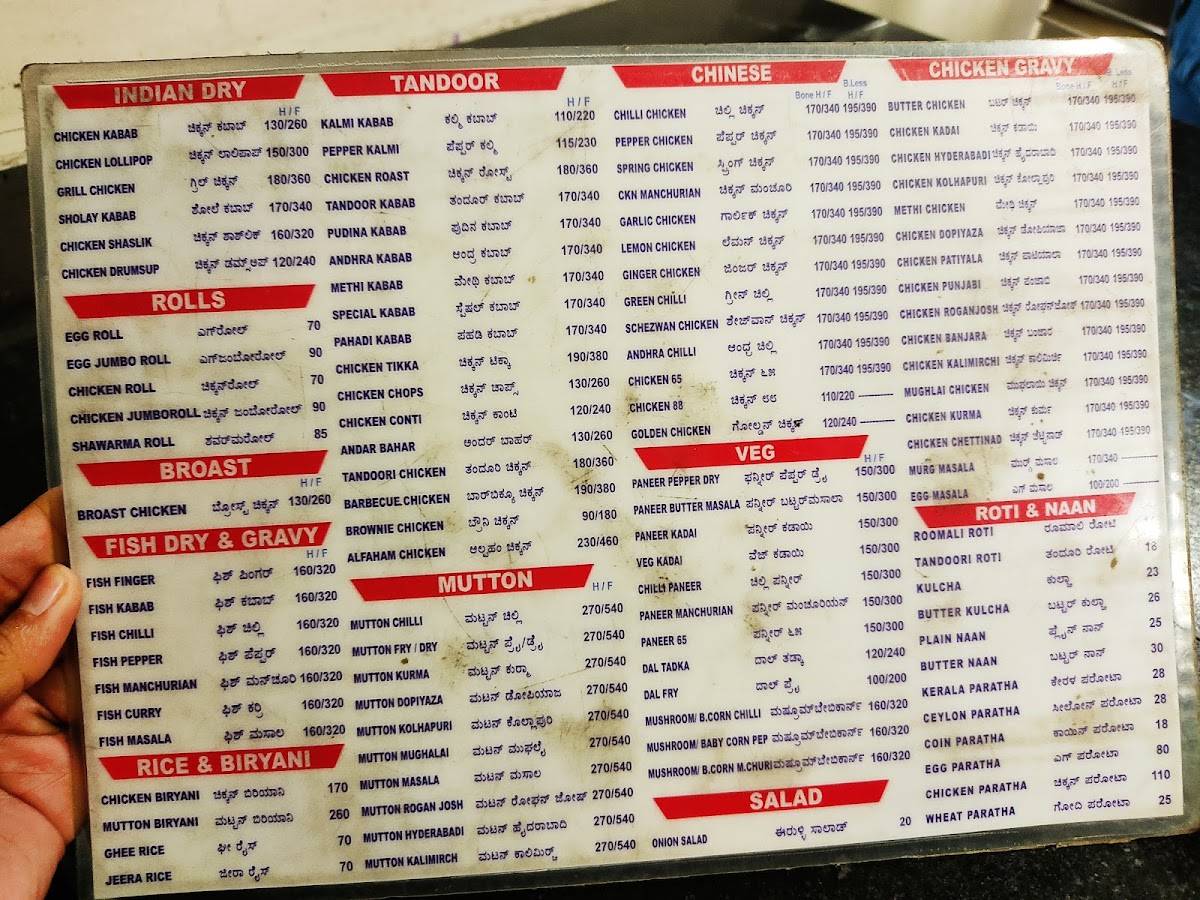 INDIAN DRY
H / F
CHICKEN KABAB ಚಿಕ್ಕನ್ ಕಬಾಬ್ 130/260
CHICKEN LOLLIPOP ಚಿಕ್ಕನ್ ಲಾಲಿಪಾಪ್ 150/300
GRILL CHICKEN ಗ್ರಿಲ್ ಚಿಕ್ಕನ್ 180/360
SHOLAY KABAB ಶೋಲೆ ಕಬಾಬ್ 170/340
CHICKEN SHASLIK ಚಿಕ್ಕನ್ ಶಾಶ್‌ಲಿಕ್ 160/320
CHICKEN DRUMSUP ಚಿಕ್ಕನ್ ಡಮ್ಸ್‌ಅಪ್ 120/240
ROLLS
EGG ROLL ಎಗ್‌ರೋಲ್ 70
EGG JUMBO ROLL ಎಗ್‌ಜಂಬೋರೋಲ್ 90
CHICKEN ROLL ಚಿಕ್ಕನ್‌ರೋಲ್ 70
CHICKEN JUMBOROLL ಚಿಕ್ಕನ್ ಜಂಬೋರೋಲ್ 90
SHAWARMA ROLL ಶವರ್‌ಮರೋಲ್ 85
BROAST
H / F
BROAST CHICKEN ಬ್ರೋಸ್ಟ್ ಚಿಕ್ಕನ್ 130/260
FISH DRY & GRAVY
H / F
FISH FINGER ಫಿಶ್ ಪಿಂಗರ್ 160/320
FISH KABAB ಫಿಶ್ ಕಬಾಬ್ 160/320
FISH CHILLI ಫಿಶ್ ಚಿಲ್ಲಿ 160/320
FISH PEPPER ಫಿಶ್ ಪೆಪ್ಪರ್ 160/320
FISH MANCHURIAN ಫಿಶ್ ಮನ್‌ಚೂರಿ 160/320
FISH CURRY ಫಿಶ್ ಕರ್ರಿ 160/320
FISH MASALA ಫಿಶ್ ಮಸಾಲ 160/320
RICE & BIRYANI
CHICKEN BIRYANI ಚಿಕ್ಕನ್ ಬಿರಿಯಾನಿ 170
MUTTON BIRYANI ಮಟ್ಟನ್ ಬಿರಿಯಾನಿ 260
GHEE RICE ಘೀ ರೈಸ್ 70
JEERA RICE ಜೀರಾ ರೈಸ್ 70
TANDOOR
H / F
KALMI KABAB ಕಲ್ಮಿ ಕಬಾಬ್ 110/220
PEPPER KALMI ಪೆಪ್ಪರ್ ಕಲ್ಮಿ 115/230
CHICKEN ROAST ಚಿಕ್ಕನ್ ರೋಸ್ಟ್ 180/360
TANDOOR KABAB ತಂದೂರ್ ಕಬಾಬ್ 170/340
PUDINA KABAB ಪುದಿನ ಕಬಾಬ್ 170/340
ANDHRA KABAB ಆಂದ್ರ ಕಬಾಬ್ 170/340
METHI KABAB ಮೇಥಿ ಕಬಾಬ್ 170/340
SPECIAL KABAB ಸ್ಪೆಷಲ್ ಕಬಾಬ್ 170/340
PAHADI KABAB ಪಹಡಿ ಕಬಾಬ್ 170/340
CHICKEN TIKKA ಚಿಕ್ಕನ್ ಟಿಕ್ಕಾ 190/380
CHICKEN CHOPS ಚಿಕ್ಕನ್ ಚಾಪ್ಸ್ 130/260
CHICKEN CONTI ಚಿಕ್ಕನ್ ಕಾಂಟಿ 120/240
ANDAR BAHAR ಅಂದರ್ ಬಾಹರ್ 130/260
TANDOORI CHICKEN ತಂದೂರಿ ಚಿಕ್ಕನ್ 180/360
BARBECUE.CHICKEN ಬಾರ್‌ಬಿಕ್ಯೂ ಚಿಕ್ಕನ್ 190/380
BROWNIE CHICKEN ಬ್ರೌನಿ ಚಿಕ್ಕನ್ 90/180
ALFAHAM CHICKEN ಅಲ್ಫಹಂ ಚಿಕ್ಕನ್ 230/460
MUTTON
H / F
MUTTON CHILLI ಮಟ್ಟನ್ ಚಿಲ್ಲಿ 270/540
MUTTON FRY / DRY ಮಟ್ಟನ್ ಪ್ರೈ/ಡ್ರೈ 270/540
MUTTON KURMA ಮಟ್ಟನ್ ಕುರ್‍ಮಾ 270/540
MUTTON DOPIYAZA ಮಟನ್ ಡೋಪಿಯಾಜ 270/540
MUTTON KOLHAPURI ಮಟನ್ ಕೊಲ್ಲಾಪುರಿ 270/540
MUTTON MUGHALAI ಮಟನ್ ಮುಘಲೈ 270/540
MUTTON MASALA ಮಟನ್ ಮಸಾಲ 270/540
MUTTON ROGAN JOSH ಮಟನ್ ರೋಘನ್ ಜೋಷ್ 270/540
MUTTON HYDERABADI ಮಟನ್ ಹೈದರಾಬಾದಿ 270/540
MUTTON KALIMIRCH ಮಟನ್ ಕಾಲಿಮಿರ್ಚ್ 270/540
CHINESE
Bone H / F B.Less H / F
CHILLI CHICKEN ಚಿಲ್ಲಿ ಚಿಕ್ಕನ್ 170/340 195/390
PEPPER CHICKEN ಪೆಪ್ಪರ್ ಚಿಕ್ಕನ್ 170/340 195/390
SPRING CHICKEN ಸ್ಪ್ರಿಂಗ್ ಚಿಕ್ಕನ್ 170/340 195/390
CKN MANCHURIAN ಚಿಕ್ಕನ್ ಮಂಚೂರಿ 170/340 195/390
GARLIC CHICKEN ಗಾರ್ಲಿಕ್ ಚಿಕ್ಕನ್ 170/340 195/390
LEMON CHICKEN ಲೆಮನ್ ಚಿಕ್ಕನ್ 170/340 195/390
GINGER CHICKEN ಜಿಂಜರ್ ಚಿಕ್ಕನ್ 170/340 195/390
GREEN CHILLI ಗ್ರೀನ್ ಚಿಲ್ಲಿ 170/340 195/390
SCHEZWAN CHICKEN ಶೇಜ್‌ವಾನ್ ಚಿಕ್ಕನ್ 170/340 195/390
ANDHRA CHILLI ಆಂಧ್ರ ಚಿಲ್ಲಿ 170/340 195/390
CHICKEN 65 ಚಿಕ್ಕನ್ ೬೫ 170/340 195/390
CHICKEN 88 ಚಿಕ್ಕನ್ ೮೮ 110/220
GOLDEN CHICKEN ಗೋಲ್ಡನ್ ಚಿಕ್ಕನ್ 120/240
VEG
H / F
PANEER PEPPER DRY ಫನ್ನೀರ್ ಪೆಪ್ಪರ್ ಡ್ರೈ 150/300
PANEER BUTTER MASALA ಪನ್ನೀರ್ ಬಟ್ಟರ್‌ಮಸಾಲಾ 150/300
PANEER KADAI ಪನ್ನೀರ್ ಕಡಾಯಿ 150/300
VEG KADAI ವೆಜ್ ಕಡಾಯಿ 150/300
CHILLI PANEER ಚಿಲ್ಲಿ ಪನ್ನೀರ್ 150/300
PANEER MANCHURIAN ಪನ್ನೀರ್ ಮಂಚೂರಿಯನ್ 150/300
PANEER 65 ಪನ್ನೀರ್ ೬೫ 150/300
DAL TADKA ದಾಲ್ ತಡ್ಕಾ 120/240
DAL FRY ದಾಲ್ ಪ್ರೈ 100/200
MUSHROOM/ B.CORN CHILLI ಮಷ್ರೂಮ್‌ಬೇಬಿಕಾರ್ನ್ 160/320
MUSHROOM/ BABY CORN PEP ಮಷ್ರೂಮ್‌ಬೇಬಿಕಾರ್ನ್ 160/320
MUSHROOM/ B.CORN M.CHURI ಮಷ್ರೂಮ್‌ಬೇಬಿಕಾರ್ನ್ 160/320
SALAD
ONION SALAD ಈರುಳ್ಳಿ ಸಾಲಾಡ್ 20
CHICKEN GRAVY
Bone H / F B. Less H / F
BUTTER CHICKEN ಬಟರ್ ಚಿಕ್ಕನ್ 170/340 195/390
CHICKEN KADAI ಚಿಕ್ಕನ್ ಕಡಾಯಿ 170/340 195/390
CHICKEN HYDERABADI ಚಿಕ್ಕನ್ ಹೈದರಾಬಾದಿ 170/340 195/390
CHICKEN KOLHAPURI ಚಿಕ್ಕನ್ ಕೋಲ್ಹಾಪುರಿ 170/340 195/390
METHI CHICKEN ಮೇಥಿ ಚಿಕ್ಕನ್ 170/340 195/390
CHICKEN DOPIYAZA ಚಿಕ್ಕನ್ ಡೋಪಿಯಾಜಾ 170/340 195/390
CHICKEN PATIYALA ಚಿಕ್ಕನ್ ಪಾಟಿಯಾಲಾ 170/340 195/390
CHICKEN PUNJABI ಚಿಕ್ಕನ್ ಪಂಜಾಬಿ 170/340 195/390
CHICKEN ROGANJOSH ಚಿಕ್ಕನ್ ರೋಘನ್‌ಜೋಶ್ 170/340 195/390
CHICKEN BANJARA ಚಿಕ್ಕನ್ ಬಂಜಾರ 170/340 195/390
CHICKEN KALIMIRCHI ಚಿಕ್ಕನ್ ಕಾಲಿಮಿರ್ಚಿ 170/340 195/390
MUGHLAI CHICKEN ಮುಘಲಾಯಿ ಚಿಕ್ಕನ್ 170/340 195/390
CHICKEN KURMA ಚಿಕ್ಕನ್ ಕುರ್ಮ 170/340 195/390
CHICKEN CHETTINAD ಚಿಕ್ಕನ್ ಚೆಟ್ಟಿನಾಡ್ 170/340 195/390
MURG MASALA ಮುರ್ಗ್ ಮಸಾಲ 170/340
EGG MASALA ಎಗ್ ಮಸಾಲ 100/200
ROTI & NAAN
ROOMALI ROTI ರೂಮಾಲಿ ರೋಟಿ
TANDOORI ROTI ತಂದೂರಿ ರೋಟಿ 18
KULCHA ಕುಲ್ಚಾ 23
BUTTER KULCHA ಬಟ್ಟರ್ ಕುಲ್ಚಾ 26
PLAIN NAAN ಪ್ಲೈನ್ ನಾನ್ 25
BUTTER NAAN ಬಟ್ಟರ್ ನಾನ್ 30
KERALA PARATHA ಕೇರಳ ಪರೋಟಾ 28
CEYLON PARATHA ಸೀಲೋನ್ ಪರೋಟಾ 28
COIN PARATHA ಕಾಯಿನ್ ಪರೋಟಾ 18
EGG PARATHA ಎಗ್ ಪರೋಟಾ 80
CHICKEN PARATHA ಚಿಕ್ಕನ್ ಪರೋಟಾ 110
WHEAT PARATHA ಗೋದಿ ಪರೋಟಾ 25